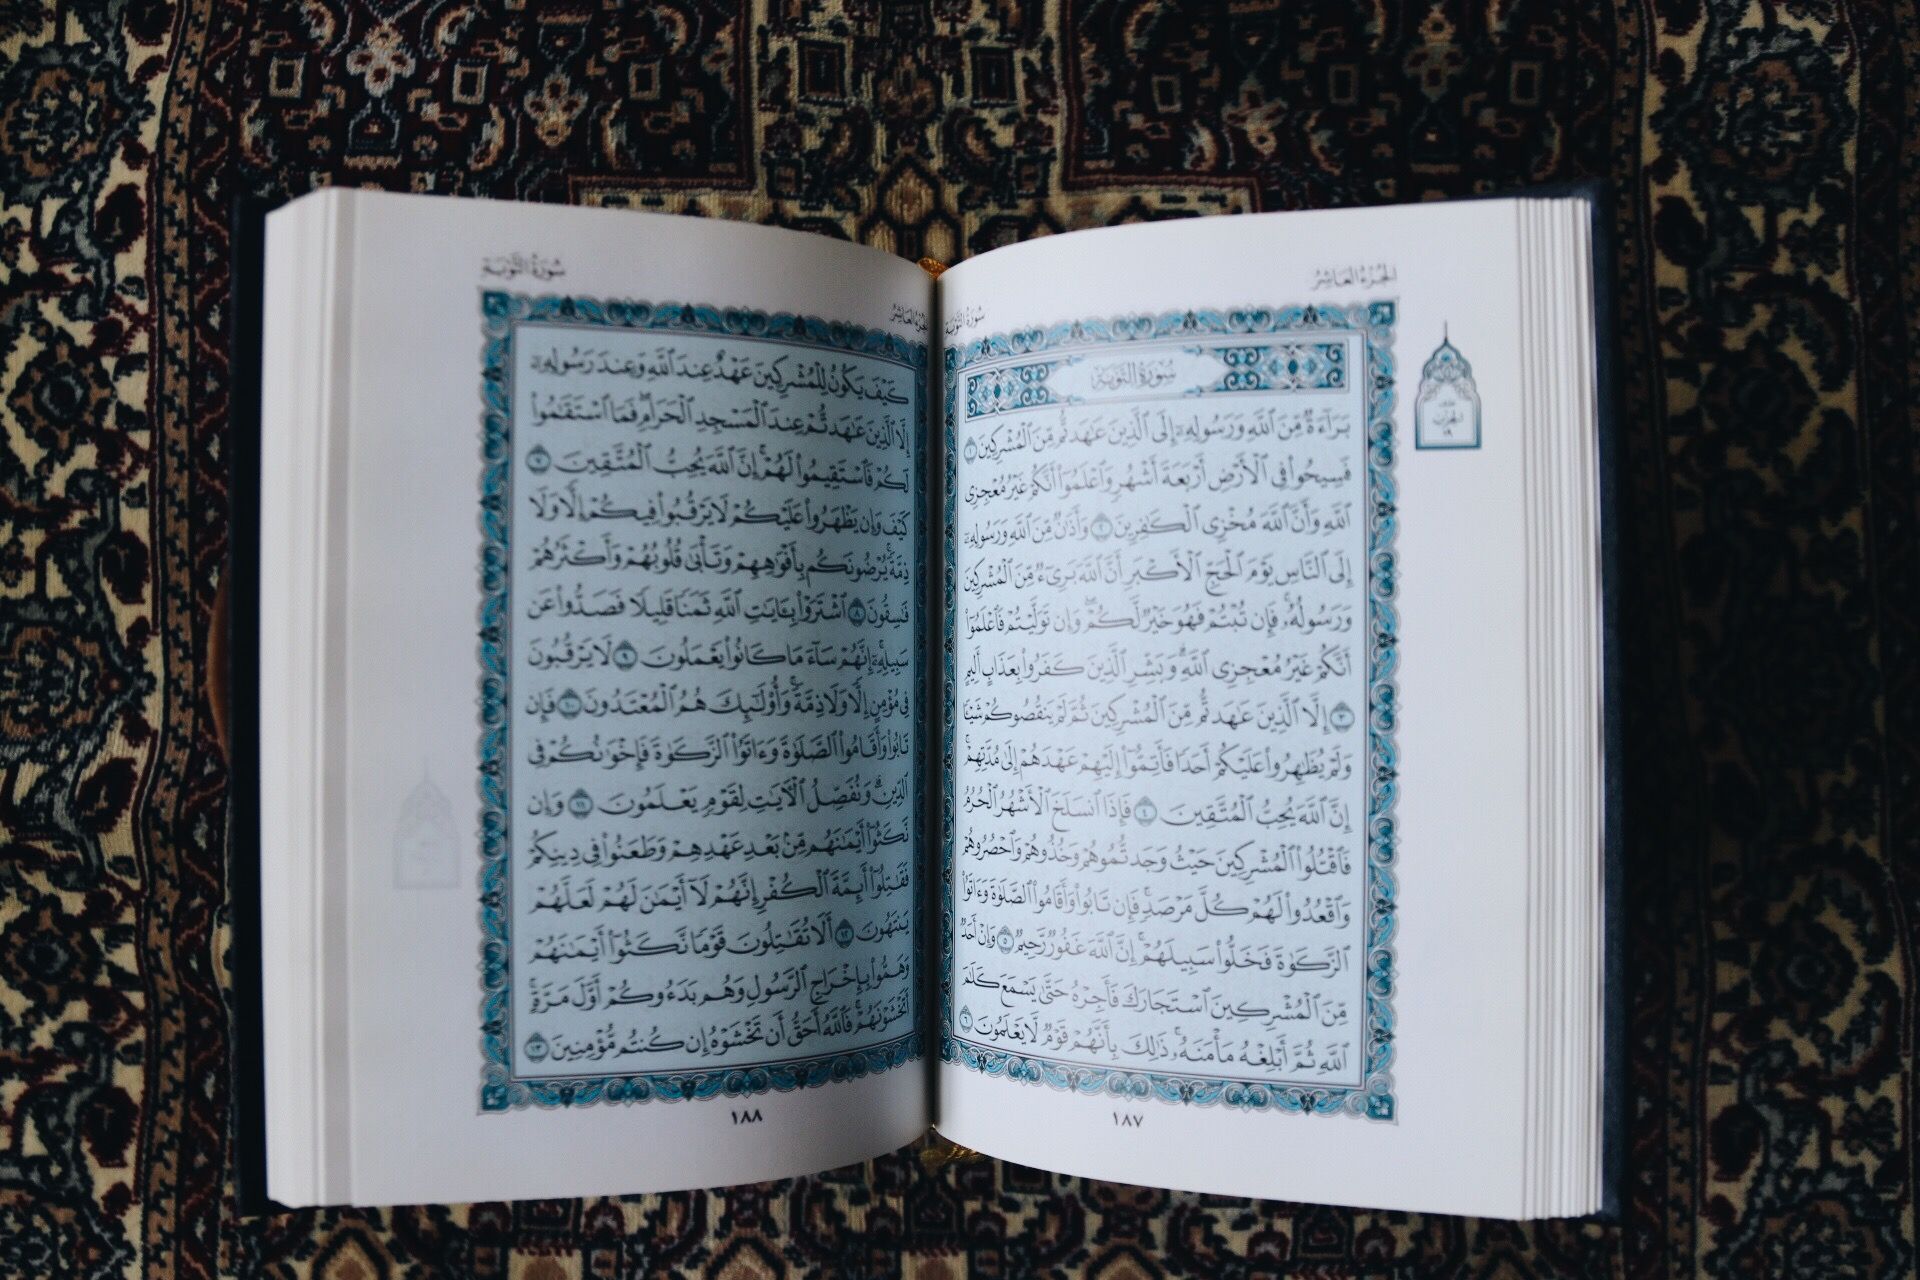 الجزء العاشر
سورة التوبة
سورة التوبة
بَرَآءَةٌ مِّنَ ٱللَّهِ وَرَسُولِهِۦٓ إِلَى ٱلَّذِينَ عَٰهَدتُّم مِّنَ ٱلْمُشْرِكِينَ ١
فَسِيحُوا۟ فِى ٱلْأَرْضِ أَرْبَعَةَ أَشْهُرٍ وَٱعْلَمُوٓا۟ أَنَّكُمْ غَيْرُ مُعْجِزِى
ٱللَّهِ وَأَنَّ ٱللَّهَ مُخْزِى ٱلْكَٰفِرِينَ ٢ وَأَذَٰنٌ مِّنَ ٱللَّهِ وَرَسُولِهِۦٓ
إِلَى ٱلنَّاسِ يَوْمَ ٱلْحَجِّ ٱلْأَكْبَرِ أَنَّ ٱللَّهَ بَرِىٓءٌ مِّنَ ٱلْمُشْرِكِينَ
وَرَسُولُهُۥ فَإِن تُبْتُمْ فَهُوَ خَيْرٌ لَّكُمْ وَإِن تَوَلَّيْتُمْ فَٱعْلَمُوٓا۟
أَنَّكُمْ غَيْرُ مُعْجِزِى ٱللَّهِ وَبَشِّرِ ٱلَّذِينَ كَفَرُوا۟ بِعَذَابٍ أَلِيمٍ
٣ إِلَّا ٱلَّذِينَ عَٰهَدتُّم مِّنَ ٱلْمُشْرِكِينَ ثُمَّ لَمْ يَنقُصُوكُمْ شَيْـًٔا
وَلَمْ يُظَٰهِرُوا۟ عَلَيْكُمْ أَحَدًا فَأَتِمُّوٓا۟ إِلَيْهِمْ عَهْدَهُمْ إِلَىٰ مُدَّتِهِمْ
إِنَّ ٱللَّهَ يُحِبُّ ٱلْمُتَّقِينَ ٤ فَإِذَا ٱنسَلَخَ ٱلْأَشْهُرُ ٱلْحُرُمُ
فَٱقْتُلُوا۟ ٱلْمُشْرِكِينَ حَيْثُ وَجَدتُّمُوهُمْ وَخُذُوهُمْ وَٱحْصُرُوهُمْ
وَٱقْعُدُوا۟ لَهُمْ كُلَّ مَرْصَدٍ فَإِن تَابُوا۟ وَأَقَامُوا۟ ٱلصَّلَوٰةَ وَءَاتَوُا۟
ٱلزَّكَوٰةَ فَخَلُّوا۟ سَبِيلَهُمْ إِنَّ ٱللَّهَ غَفُورٌ رَّحِيمٌ ٥ وَإِنْ أَحَدٌ
مِّنَ ٱلْمُشْرِكِينَ ٱسْتَجَارَكَ فَأَجِرْهُ حَتَّىٰ يَسْمَعَ كَلَٰمَ
ٱللَّهِ ثُمَّ أَبْلِغْهُ مَأْمَنَهُۥ ذَٰلِكَ بِأَنَّهُمْ قَوْمٌ لَّا يَعْلَمُونَ ٦
١٨٧
الجزء العاشر
سورة التوبة
كَيْفَ يَكُونُ لِلْمُشْرِكِينَ عَهْدٌ عِندَ ٱللَّهِ وَعِندَ رَسُولِهِۦٓ
إِلَّا ٱلَّذِينَ عَٰهَدتُّمْ عِندَ ٱلْمَسْجِدِ ٱلْحَرَامِ فَمَا ٱسْتَقَٰمُوا۟
لَكُمْ فَٱسْتَقِيمُوا۟ لَهُمْ إِنَّ ٱللَّهَ يُحِبُّ ٱلْمُتَّقِينَ ٧
كَيْفَ وَإِن يَظْهَرُوا۟ عَلَيْكُمْ لَا يَرْقُبُوا۟ فِيكُمْ إِلًّا وَلَا
ذِمَّةً يُرْضُونَكُم بِأَفْوَٰهِهِمْ وَتَأْبَىٰ قُلُوبُهُمْ وَأَكْثَرُهُمْ
فَٰسِقُونَ ٨ ٱشْتَرَوْا۟ بِـَٔايَٰتِ ٱللَّهِ ثَمَنًا قَلِيلًا فَصَدُّوا۟ عَن
سَبِيلِهِۦٓ إِنَّهُمْ سَآءَ مَا كَانُوا۟ يَعْمَلُونَ ٩ لَا يَرْقُبُونَ
فِى مُؤْمِنٍ إِلًّا وَلَا ذِمَّةً وَأُو۟لَٰٓئِكَ هُمُ ٱلْمُعْتَدُونَ ١٠ فَإِن
تَابُوا۟ وَأَقَامُوا۟ ٱلصَّلَوٰةَ وَءَاتَوُا۟ ٱلزَّكَوٰةَ فَإِخْوَٰنُكُمْ فِى
ٱلدِّينِ وَنُفَصِّلُ ٱلْـَٔايَٰتِ لِقَوْمٍ يَعْلَمُونَ ١١ وَإِن
نَّكَثُوٓا۟ أَيْمَٰنَهُم مِّنۢ بَعْدِ عَهْدِهِمْ وَطَعَنُوا۟ فِى دِينِكُمْ
فَقَٰتِلُوٓا۟ أَئِمَّةَ ٱلْكُفْرِ إِنَّهُمْ لَآ أَيْمَٰنَ لَهُمْ لَعَلَّهُمْ
يَنتَهُونَ ١٢ أَلَا تُقَٰتِلُونَ قَوْمًا نَّكَثُوٓا۟ أَيْمَٰنَهُمْ
وَهَمُّوا۟ بِإِخْرَاجِ ٱلرَّسُولِ وَهُم بَدَءُوكُمْ أَوَّلَ مَرَّةٍ
أَتَخْشَوْنَهُمْ فَٱللَّهُ أَحَقُّ أَن تَخْشَوْهُ إِن كُنتُم مُّؤْمِنِينَ ١٣
١٨٨